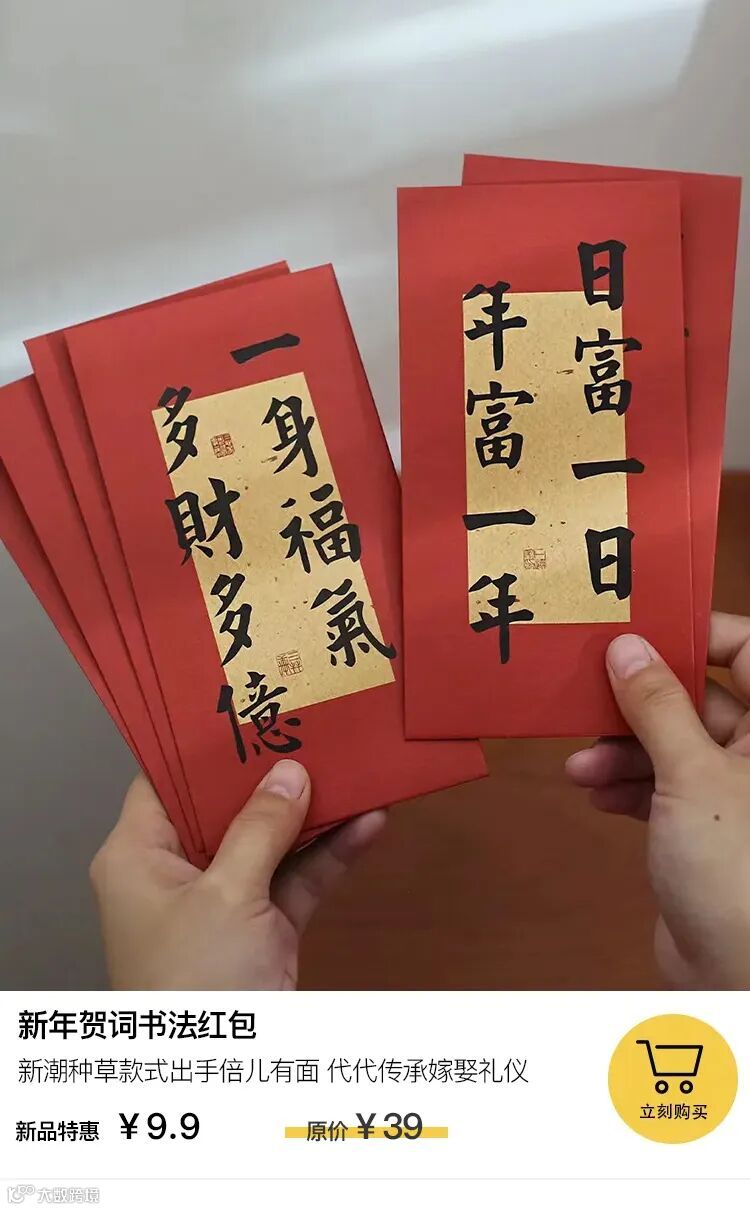 一身福氣
多財多億
日富一日
年富一年
新年贺词书法红包
新潮种草款式出手倍儿有面 代代传承嫁娶礼仪
新品特惠 ¥9.9 原价 ¥39
立刻购买
大数跨境